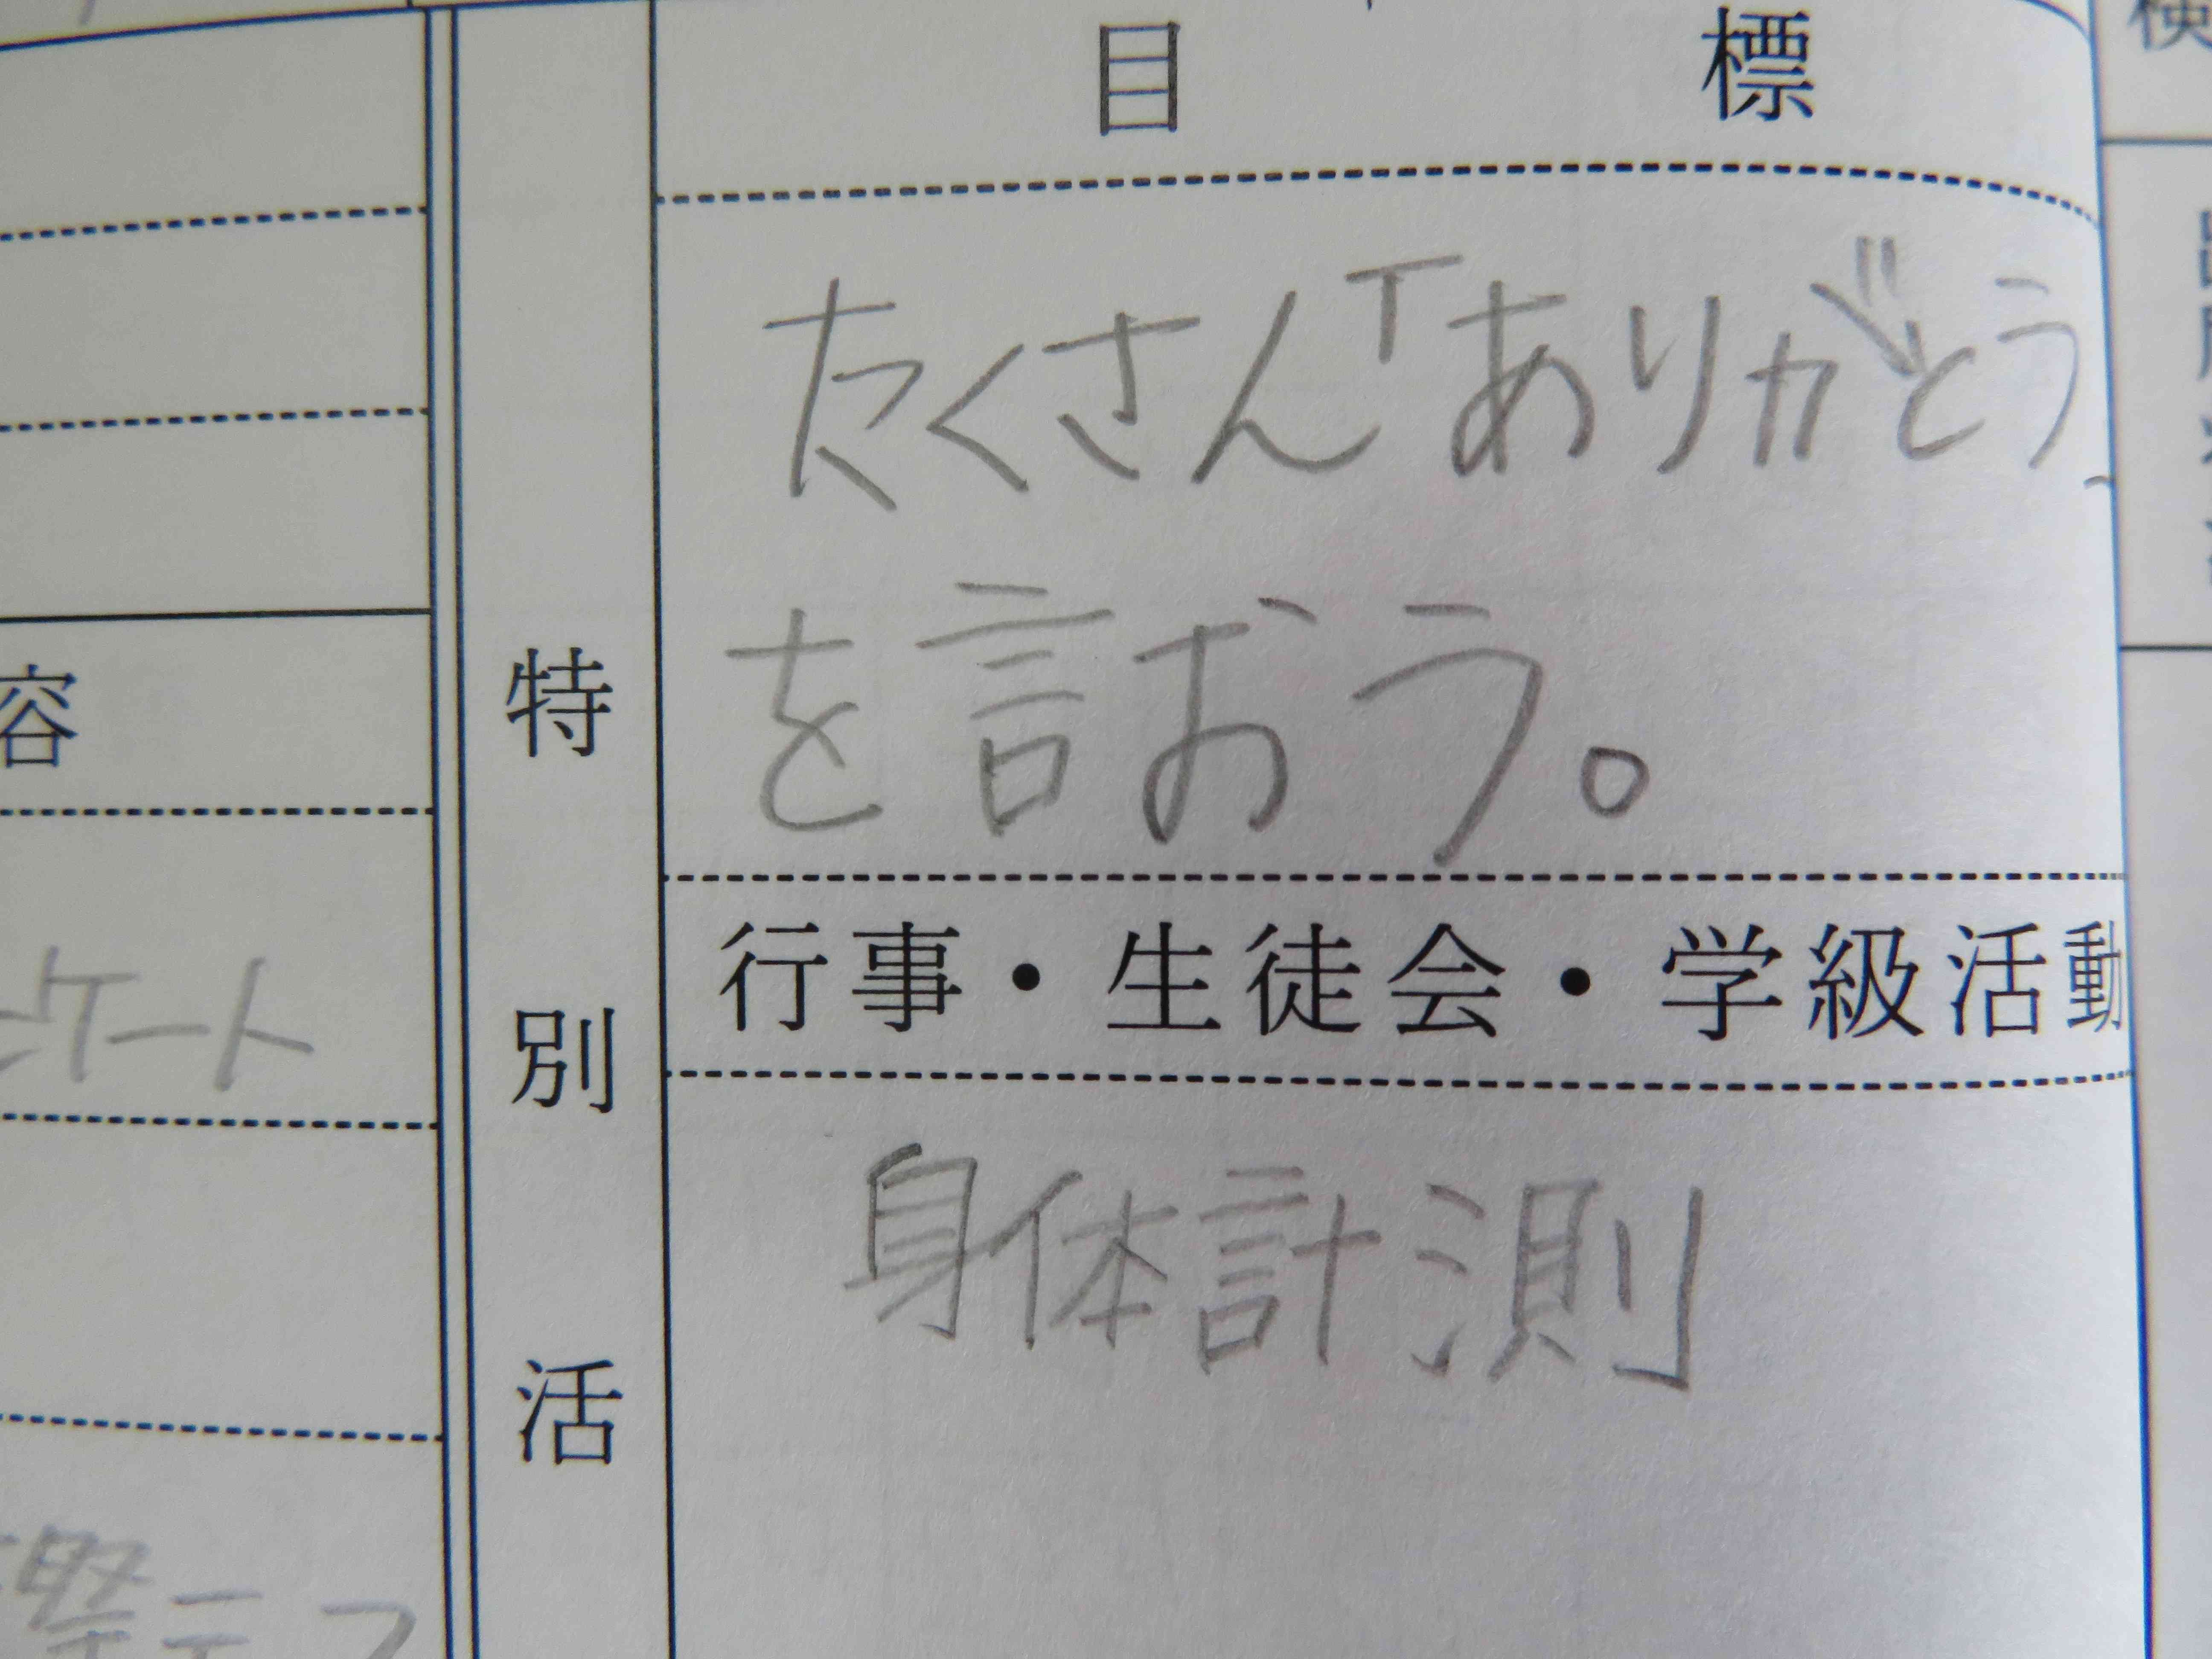 目標
たくさん「ありがとう
を言おう。
行事・生徒会・学級活動
身体計測
特別活
容
ケート